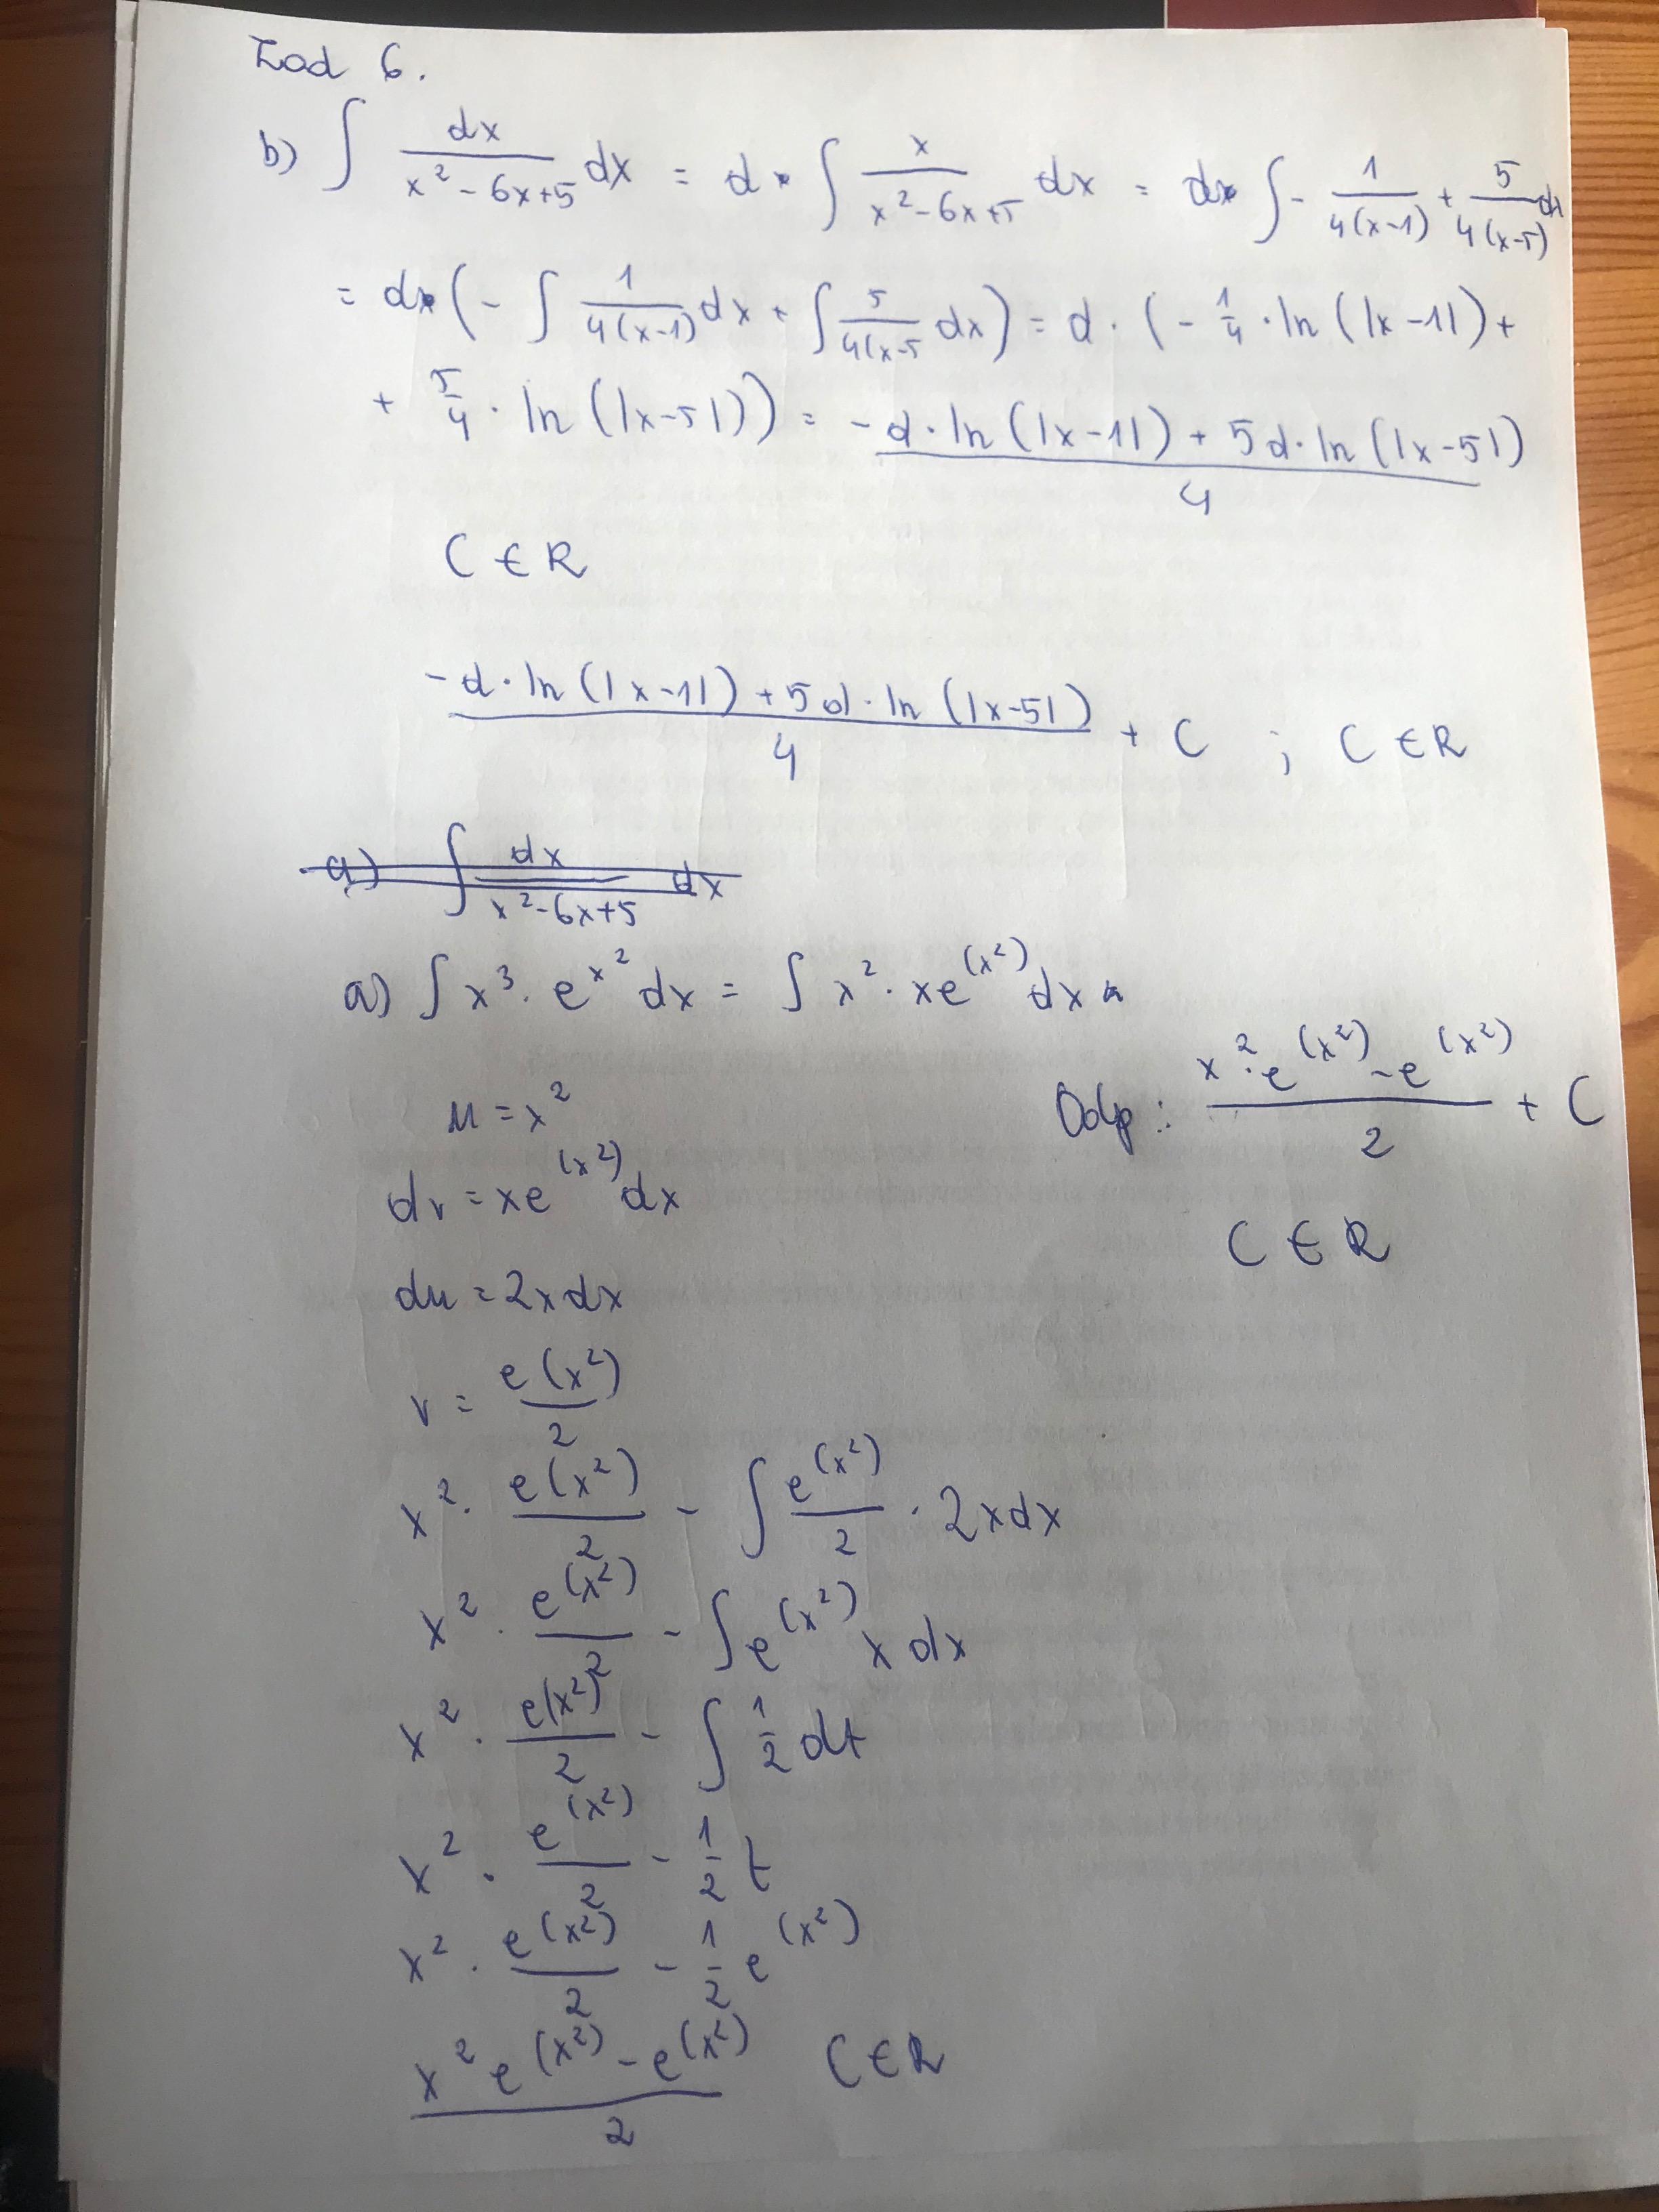 Zad 6.
b) ∫ dx/(x² - 6x+5) dx = d · ∫ x/(x² - 6x+5) dx = d · ∫ - 1/(4(x-1)) + 5/(4(x-5)) dx
= d · (- ∫ 1/(4(x-1)) dx + ∫ 5/(4(x-5) dx) = d · (- 1/4 · ln (|x-1|) +
+ 5/4 · ln (|x-5|)) = (-d · ln (|x-1|) + 5d · ln (|x-5|))/4
C ∈ R
(-d · ln (|x-1|) + 5d · ln (|x-5|))/4 + C ; C ∈ R
a) ∫ dx/(x²-6x+5) dx
a) ∫ x³ · e^x² dx = ∫ x² · xe^(x²) dx =
u = x²
Odp: (x² · e^(x²) - e^(x²))/2 + C
dv = xe^(x²) dx
C ∈ R
du = 2x dx
v = e^(x²)/2
x² · e^(x²)/2 - ∫ e^(x²)/2 · 2x dx
x² · e^(x²)/2 - ∫ e^(x²) x dx
x² · e^(x²)/2 - ∫ 1/2 dt
x² · e^(x²)/2 - 1/2 t
x² · e^(x²)/2 - 1/2 e^(x²)
(x² e^(x²) - e^(x²))/2 C ∈ R